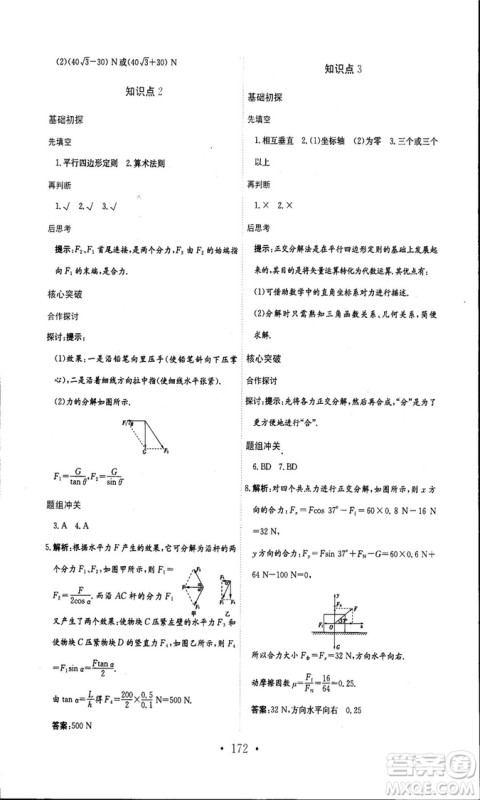 (2)(40√3－30) N或(40√3＋30) N
知识点 2
基础初探
先填空
1.平行四边形定则 2.算术法则
再判断
1.√ 2.√ 3.√
后思考
提示:F₂、F₁ 首尾连接,是两个分力,由 F₂ 的始端指
向 F₁ 的末端,是合力.
核心突破
合作探讨
探讨:提示:
(1)效果:一是沿铅笔向里压手(使铅笔尾端下压掌
心),二是沿着细线向外拉中指(使细线水平张紧).
(2)力的分解如图所示.
F₂
θ
G F₁
F₂＝G/tan θ,F₁＝G/sin θ.
题组冲关
3.A 4.A
5.解析:根据水平力 F 产生的效果,它可分解为沿杆的两
个分力 F₁、F₂,如图甲所示,则 F₁＝
F₂＝F/2cos α.而沿 AC 杆的分力 F₁
甲 乙
又产生了两个效果:使物块压紧水平地面的水平力 F₃
使物块 C 压紧物块 D 的竖直力 F₄,如图乙所示,则 F₄
＝F₁sin α＝Ftan α/2.
由 tan α＝L/h 得 F₄＝200/2×0.5/0.1 N＝500 N.
答案:500 N
知识点 3
基础初探
先填空
1.相互垂直 2.(1)坐标轴 (2)为零 3.三个或三个
以上
再判断
1.× 2.×
后思考
提示:正交分解法是在平行四边形定则的基础上发展起
来的,其目的是将矢量运算转化为代数运算.其优点:
(1)可借助数学中的直角坐标系对力进行描述.
(2)分解时只需熟知三角函数关系、几何关系,简便、容易
求解.
核心突破
合作探讨
探讨:提示:先将各力正交分解,然后再合成.“分”是为了
更方便地进行“合”.
题组冲关
6.BD 7.BD
8.解析:对四个共点力进行正交分解,如图所示.则 x 方
向的合力:Fₓ＝Fcos 37°－Ff＝60×0.8 N－16 N
＝32 N,
y 方向合力:Fy＝Fsin 37°＋FN－G＝60×0.6 N＋
64 N－100 N＝0
37°
G
所以合力大小 F合＝Fₓ＝32 N,方向水平向右.
动摩擦因数 μ＝Ff/FN＝16/64＝0.25.
答案:32 N,方向水平向右 0.25
·172·